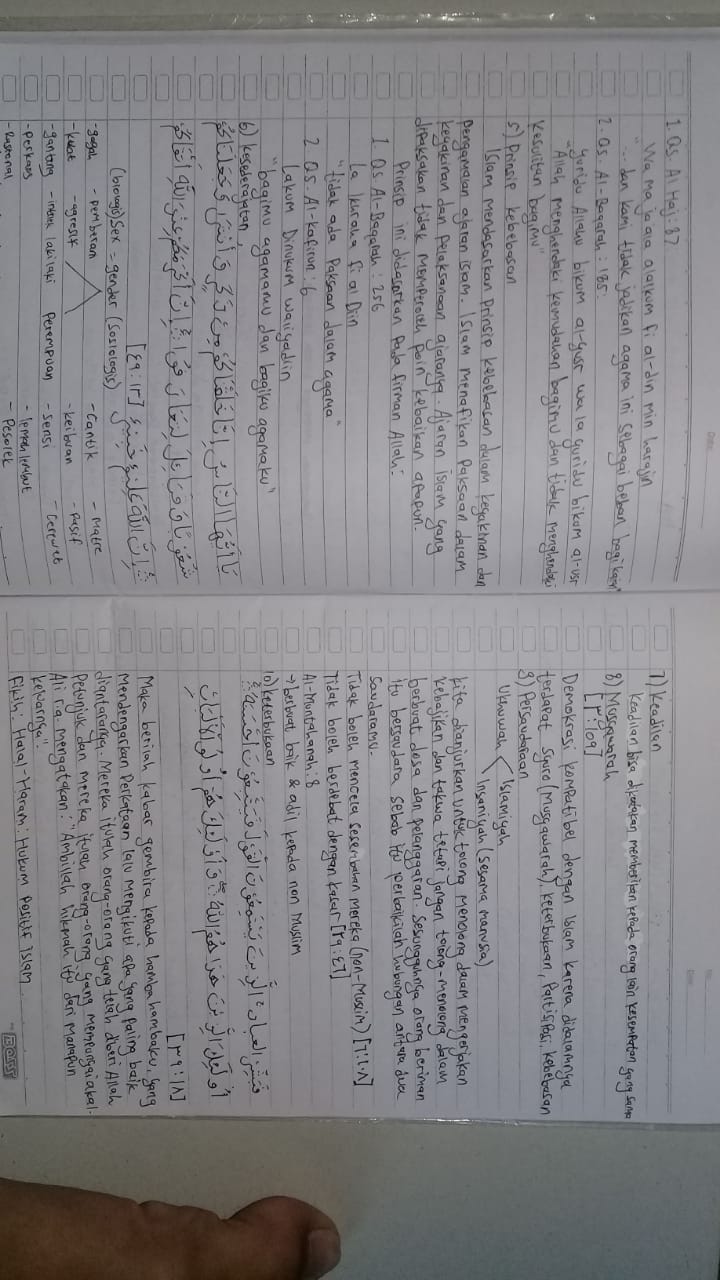 1. Qs. Al Haj : 87
Wa ma ja ala alaikum fi al-din min harajin
"... dan kami tidak jadikan agama ini sebagai beban bagi kalian"
2. Qs. Al-Baqarah : 185.
Yuridu Allahu bikum al-yusr wa la yuridu bikum al-usr
"Allah menghendaki kemudahan bagimu dan tidak menghendaki
kesulitan bagimu"
5) Prinsip kebebasan
Islam mendasarkan Prinsip kebebasan dalam keyakinan dan
pengamalan ajaran islam. Islam menafikan Paksaan dalam
keyakinan dan pelaksanaan ajaranya. Ajaran islam yang
dipaksakan tidak memperoleh poin kebaikan apapun.
Prinsip ini didasarkan Pada firman Allah :
1. Qs Al-Baqarah : 256
La ikraha fi al Diin
"tidak ada Paksaan dalam agama"
2. Qs Al-kafirun : 6
Lakum Dinukum waliyadiin
"bagimu agamamu dan bagiku agamaku"
6) kesederajatan
يَا أَيُّهَا النَّاسُ إِنَّا خَلَقْنَاكُمْ مِنْ ذَكَرٍ وَأُنْثَى وَجَعَلْنَاكُمْ
شُعُوبًا وَقَبَائِلَ لِتَعَارَفُوا إِنَّ أَكْرَمَكُمْ عِنْدَ اللَّهِ أَتْقَاكُمْ
إِنَّ اللَّهَ عَلِيمٌ خَبِيرٌ [٤٩ : ١٣]
(biologis) Sex = gender (Sosiologis)
- gagah - pemberani - Cantik - Matre
- kuat - agresif - keibuan - Pasif
- ganteng laki laki Perempuan - Sensi - Cerewet
- perkasa - lemah lembut
- Rasional - Pesolek
7) Keadilan
Keadilan bisa dikatakan memberikan kepada orang lain kesempatan yang sama
8) Musyawarah
[٣ : ١٥٩]
Demokrasi kompatibel dengan Islam karena didalamnya
terdapat Syuro (Musyawarah), keterbukaan, Partisipasi, kebebasan
9) Persaudaraan
Ukhuwah < Islamiyah
Insaniyah (Sesama manusia)
kita dianjurkan untuk tolong menolong dalam mengerjakan
kebajikan dan takwa tetapi jangan tolong-menolong dalam
berbuat dosa dan pelanggaran. Sesungguhnya orang beriman
itu bersaudara sebab itu perbaikilah hubungan antara dua
Saudaramu.
Tidak boleh mencela sesembahan mereka (non-Muslim) [٦ : ١٠٨]
Tidak boleh berdebat dengan kasar [٢٩ : ٤٦]
Al-Mumtahanah : 8
→ berbuat baik & adil kepada non Muslim
10) keterbukaan
فَبَشِّرْ الْعِبَادِ ۞ الَّذِينَ يَسْتَمِعُونَ الْقَوْلَ فَيَتَّبِعُونَ أَحْسَنَهُ
أُولَئِكَ الَّذِينَ هَدَاهُمُ اللَّهُ وَأُولَئِكَ هُمْ أُولُو الْأَلْبَابِ
[٣٩ : ١٨]
Maka berilah kabar gembira kepada hamba hambaku. Yang
mendengarkan Perkataan lalu mengikuti apa yang paling baik
diantaranya. Mereka itulah orang-orang yang telah diberi Allah
Petunjuk dan mereka itulah orang-orang yang mempunyai akal.
Ali ra. mengatakan : "Ambillah hikmah itu dari Manapun
keluarnya".
Fikih : Halal - Haram : Hukum Positif Islam